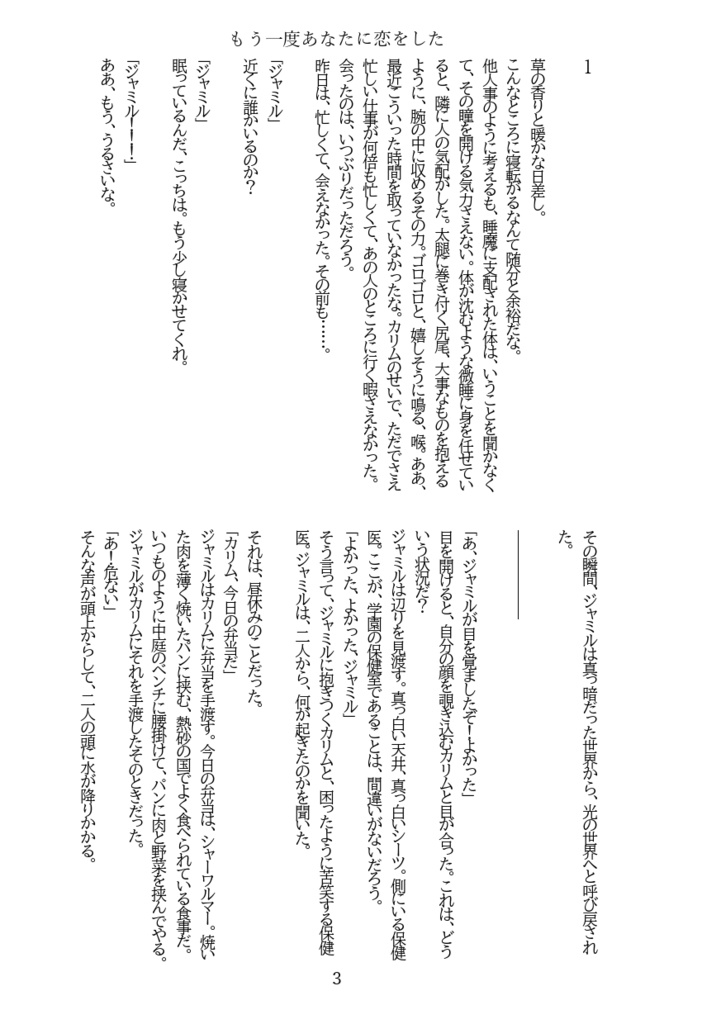 もう一度あなたに恋をした
1
草の香りと暖かな日差し。
こんなところに寝転がるなんて随分と余裕だな。
他人事のように考えるも、睡魔に支配された体は、いうことを聞かなく
て、その瞳を開ける気力さえない。体が沈むような微睡に身を任せてい
ると、隣に人の気配がした。太腿に巻き付く尻尾、大事なものを抱える
ように、腕の中に収めるその力。ゴロゴロと、嬉しそうに鳴る、喉。ああ、
最近こういった時間を取っていなかったな。カリムのせいで、ただでさえ
忙しい仕事が何倍も忙しくて、あの人のところに行く暇さえなかった。
会ったのは、いつぶりだっただろう。
昨日は、忙しくて、会えなかった。その前も……。
「ジャミル」
近くに誰かいるのか？
「ジャミル」
眠っているんだ、こっちは。もう少し寝かせてくれ。
「ジャミル！！！」
ああ、もう、うるさいな。
その瞬間、ジャミルは真っ暗だった世界から、光の世界へと呼び戻され
た。
「あ、ジャミルが目を覚ましたぞ！よかった」
目を開けると、自分の顔を覗き込むカリムと目が合った。これは、どう
いう状況だ？
ジャミルは辺りを見渡す。真っ白い天井、真っ白いシーツ。側にいる保健
医。ここが、学園の保健室であることは、間違いがないだろう。
「よかった、よかった、ジャミル」
そう言って、ジャミルに抱きつくカリムと、困ったように苦笑する保健
医。ジャミルは、二人から、何が起きたのかを聞いた。
それは、昼休みのことだった。
「カリム、今日の弁当だ」
ジャミルはカリムに弁当を手渡す。今日の弁当は、シャーワルマー。焼い
た肉を薄く焼いたパンに挟む、熱砂の国でよく食べられている食事だ。
いつものように中庭のベンチに腰掛けて、パンに肉と野菜を挟んでやる。
ジャミルがカリムにそれを手渡したそのときだった。
「あ！危ない」
そんな声が頭上からして、二人の頭に水が降りかかる。
3